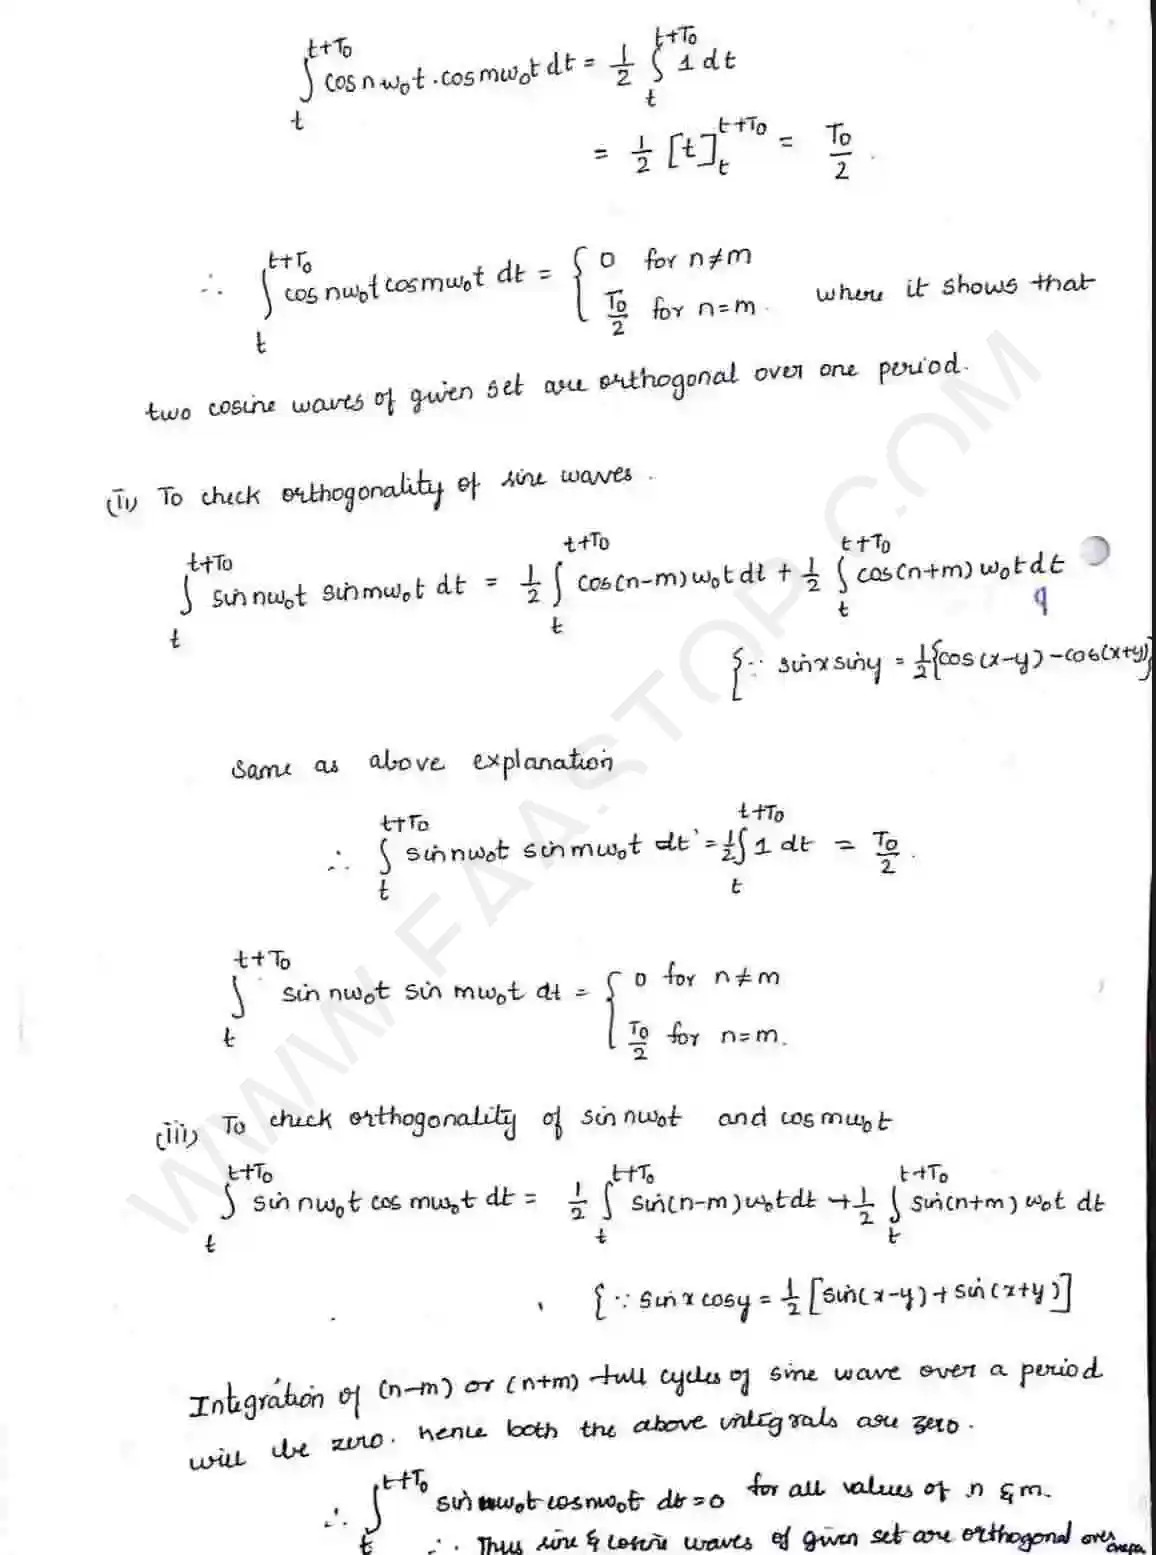 ∫_t^{t+T₀} cos nω₀t . cos mω₀t dt = 1/2 ∫_t^{t+T₀} 1 dt
= 1/2 [t]_t^{t+T₀} = T₀/2 .
∴ ∫_t^{t+T₀} cos nω₀t cos mω₀t dt = { 0 for n≠m
T₀/2 for n=m . where it shows that
two cosine waves of given set are orthogonal over one period.
(ii) To check orthogonality of sine waves .
∫_t^{t+T₀} sin nω₀t sin mω₀t dt = 1/2 ∫_t^{t+T₀} cos(n-m) ω₀t dt + 1/2 ∫_t^{t+T₀} cos(n+m) ω₀t dt
9
{∵ sin x sin y = 1/2 {cos(x-y) - cos(x+y)}
same as above explanation
∴ ∫_t^{t+T₀} sin nω₀t sin mω₀t dt = 1/2 ∫_t^{t+T₀} 1 dt = T₀/2 .
∫_t^{t+T₀} sin nω₀t sin mω₀t dt = { 0 for n≠m
T₀/2 for n=m.
(iii) To check orthogonality of sin nω₀t and cos mω₀t
∫_t^{t+T₀} sin nω₀t cos mω₀t dt = 1/2 ∫_t^{t+T₀} sin(n-m) ω₀t dt + 1/2 ∫_t^{t+T₀} sin(n+m) ω₀t dt
{∵ sin x cos y = 1/2 [sin(x-y) + sin(x+y)]
Integration of (n-m) or (n+m) full cycles of sine wave over a period
will be zero. hence both the above integrals are zero.
∴ ∫_t^{t+T₀} sin nω₀t cos mω₀t dt = 0 for all values of n & m.
∴ Thus sine & cosine waves of given set are orthogonal over
WWW.FAASTOP.COM